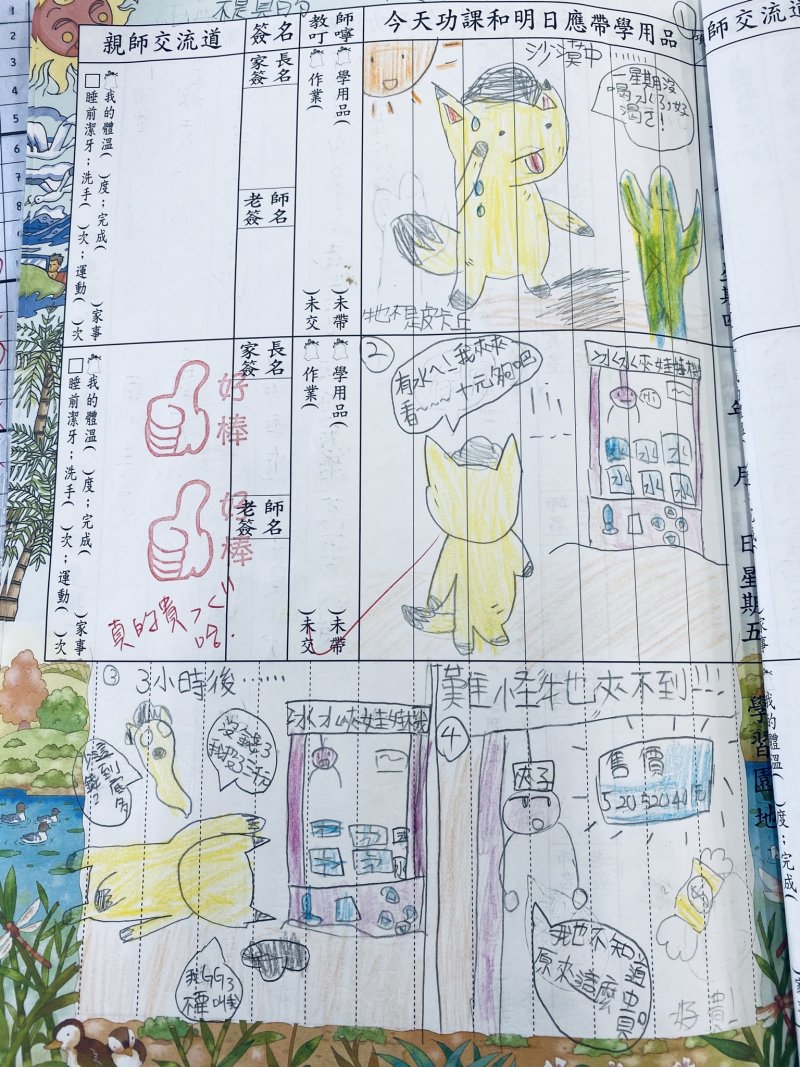 親師交流道
簽名
教師叮嚀
今天功課和明日應帶學用品
師交流道
我的體溫（ ）度；完成（ ）家事
□睡前潔牙；洗手（ ）次；運動（ ）次
家長簽名
老師簽名
學用品（ ）未帶
作業（ ）未交
①
沙漠中
一星期沒
喝水了好
渴ㄛ!
牠也不是皮卡丘
我的體溫（ ）度；完成（ ）家事
□睡前潔牙；洗手（ ）次；運動（ ）次
好棒
好棒
真的貴ㄋㄟ
家長簽名
老師簽名
學用品（ ）未帶
作業（ ）未交
②
有水ㄟ!我來夾
看~~~十元夠吧
冰水夾娃娃機
水
水
水
水
水
月
日
星期五
③
3小時後……
沒錢了
冰水夾娃娃機
我GG了
④
難怪牠也夾不到!!!
夾子
售價
520520440
我也不知道
原來這麼貴。
好貴!
學習園地
我的體溫（ ）度；完成（